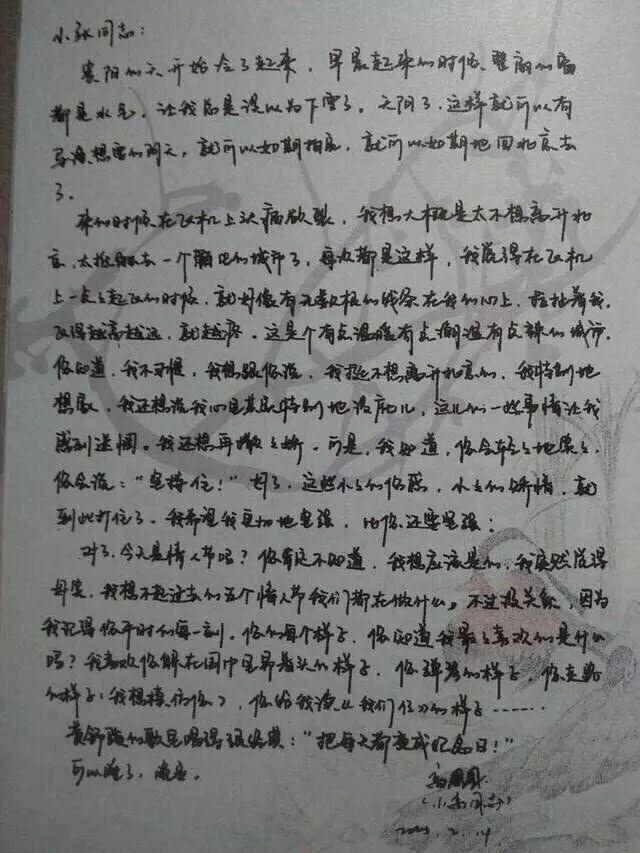 小张同志：
襄阳的天开始冷了起来，早晨起来的时候，整扇的窗
都是水气，让我总是误以为下雪了。天阴了，这样就可以有
导演想要的阴天，就可以如期拍完，就可以如期地回北京去
了。
来的时候在飞机上头痛欲裂，我想大概是太不想离开北
京，太抵触去一个陌生的城市了，每次都是这样，我觉得在飞机
上一点点起飞的时候，就好像有无数根的线系在我的心上，拉扯着我，
飞得越高越远，就越疼。这是个有点温暖有点潮湿有点辣的城市，
你知道，我不习惯，我想跟你说，我挺不想离开北京的，我特别地
想家，我还想说我心里其实特别地没底儿，这儿的一些事情让我
感到迷惘。我还想再撒撒娇。可是，我知道，你会轻轻地笑笑，
你会说：“坚持住！”好了，这些小小的伤感，小小的矫情，就
到此打住了。我希望我真切地坚强，比你还要坚强；
对了，今天是情人节吗？你肯定不知道，我想应该是的，我突然觉得
我想不起过去的五个情人节我们都在做什么。不过没关系，因为
我记得你平时的每一刻，你的每个样子，你知道我最喜欢的是什么
吗？我喜欢你躲在围巾里昂着头的样子，你弹琴的样子，你走路
的样子（我想模仿你），你给我读《我们仨》的样子……
黄舒骏的歌里唱得很好：“把每天都变成纪念日！”
可以睡了，晚安。
（小高同志）
2.14